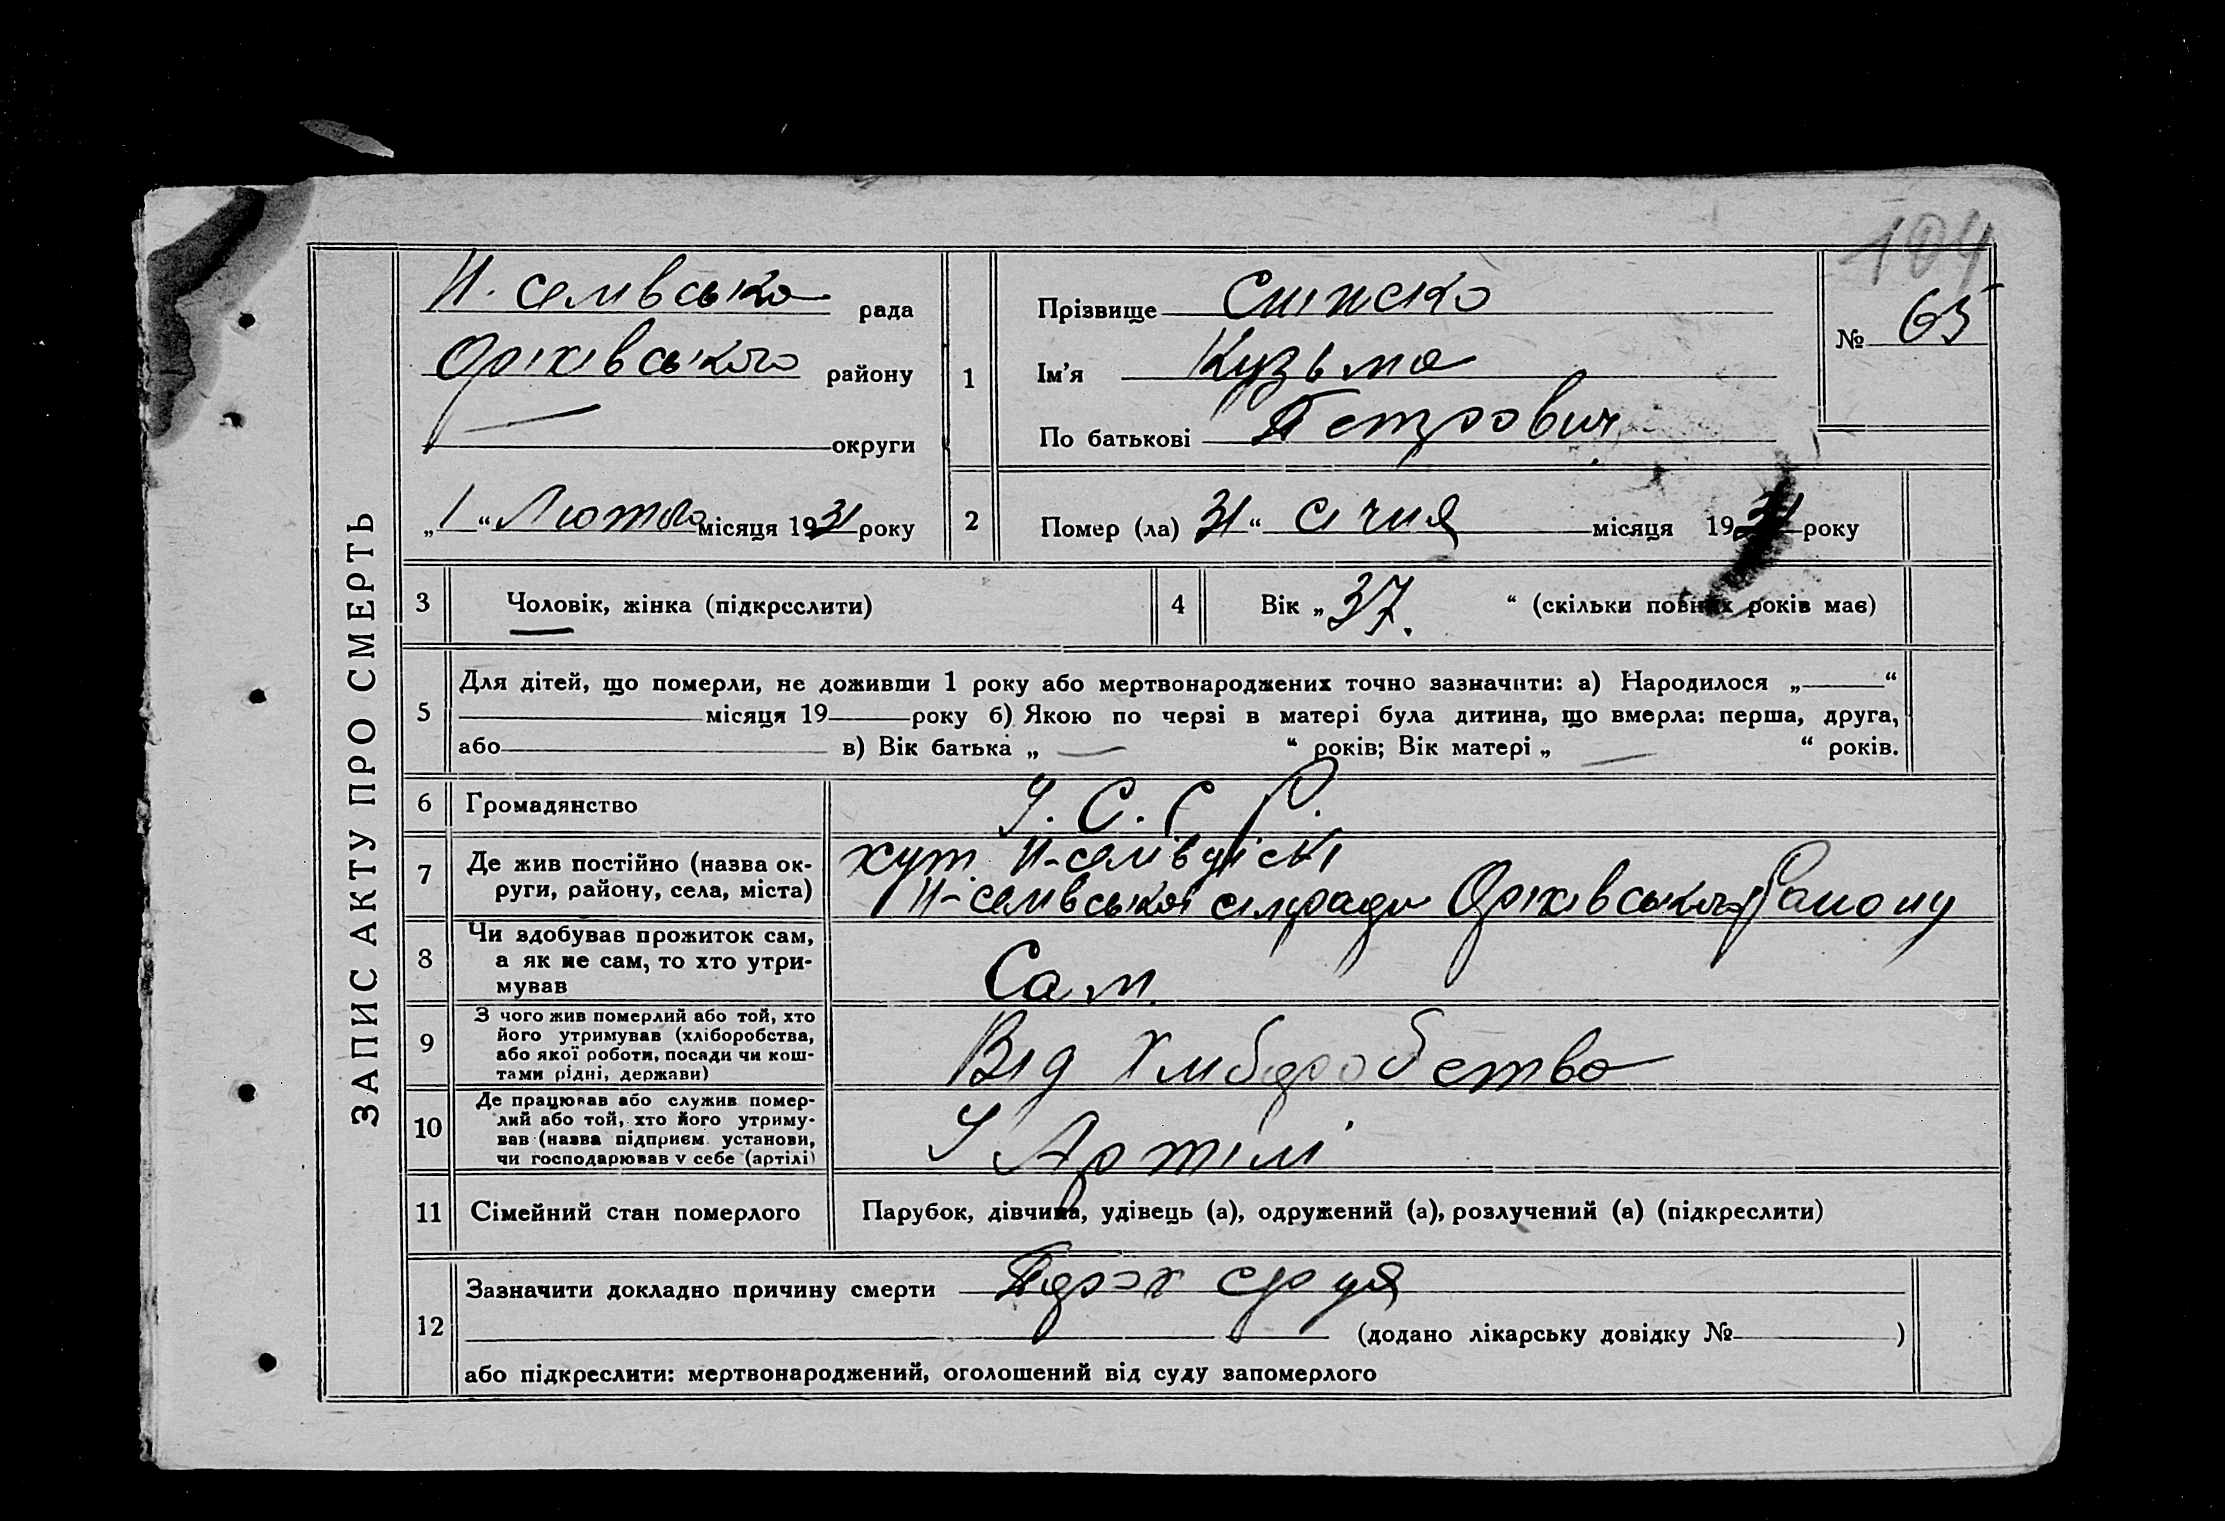 104
Н. Селивська рада
Оріхівського району
округи
„ 1 “ Лютого місяця 1931 року
1
Прізвище
Ім'я Кузьма
По батькові Петрович
№ 65
2
Помер (ла) 31 “ січня місяця 1931 року
ЗАПИС АКТУ ПРО СМЕРТЬ
3 Чоловік, жінка (підкреслити)
4 Вік „ 37. “ (скільки повних років має)
5
Для дітей, що померли, не доживши 1 року або мертвонароджених точно зазначити: а) Народилося „ “
місяця 19 року б) Якою по черзі в матері була дитина, що вмерла: перша, друга,
або в) Вік батька „ — “ років; Вік матері „ — “ років.
6 Громадянство У. С. С. Р.
7 Де жив постійно (назва ок-
руги, району, села, міста)
хут.
сільради Оріхівського Району
8 Чи здобував прожиток сам,
а як не сам, то хто утри-
мував
Сам.
9 З чого жив померлий або той, хто
його утримував (хліборобства,
або якої роботи, посади чи кош-
тами рідні, держави)
Від Хліборобства
10 Де працював або служив помер-
лий або той, хто його утриму-
вав (назва підприєм. установи,
чи господарював у себе (артілі)
У Артілі
11 Сімейний стан померлого
Парубок, дівчина, удівець (а), одружений (а), розлучений (а) (підкреслити)
12
Зазначити докладно причину смерти Порок серця
(додано лікарську довідку № )
або підкреслити: мертвонароджений, оголошений від суду запомерлого